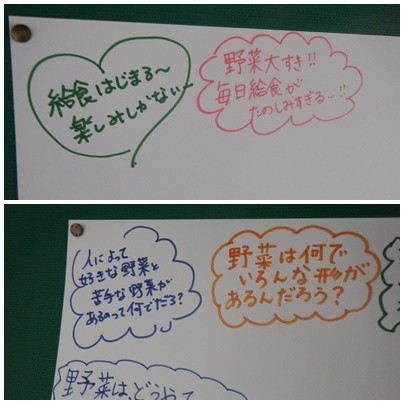 給食はじまる〜
楽しみしかない〜
野菜大すき!!
毎日給食が
たのしみすぎる〜!!
人によって
好きな野菜と
苦手な野菜が
あるのって何でだろ?
野菜は何で
いろんな形が
あるんだろう?
野菜は、どうやって